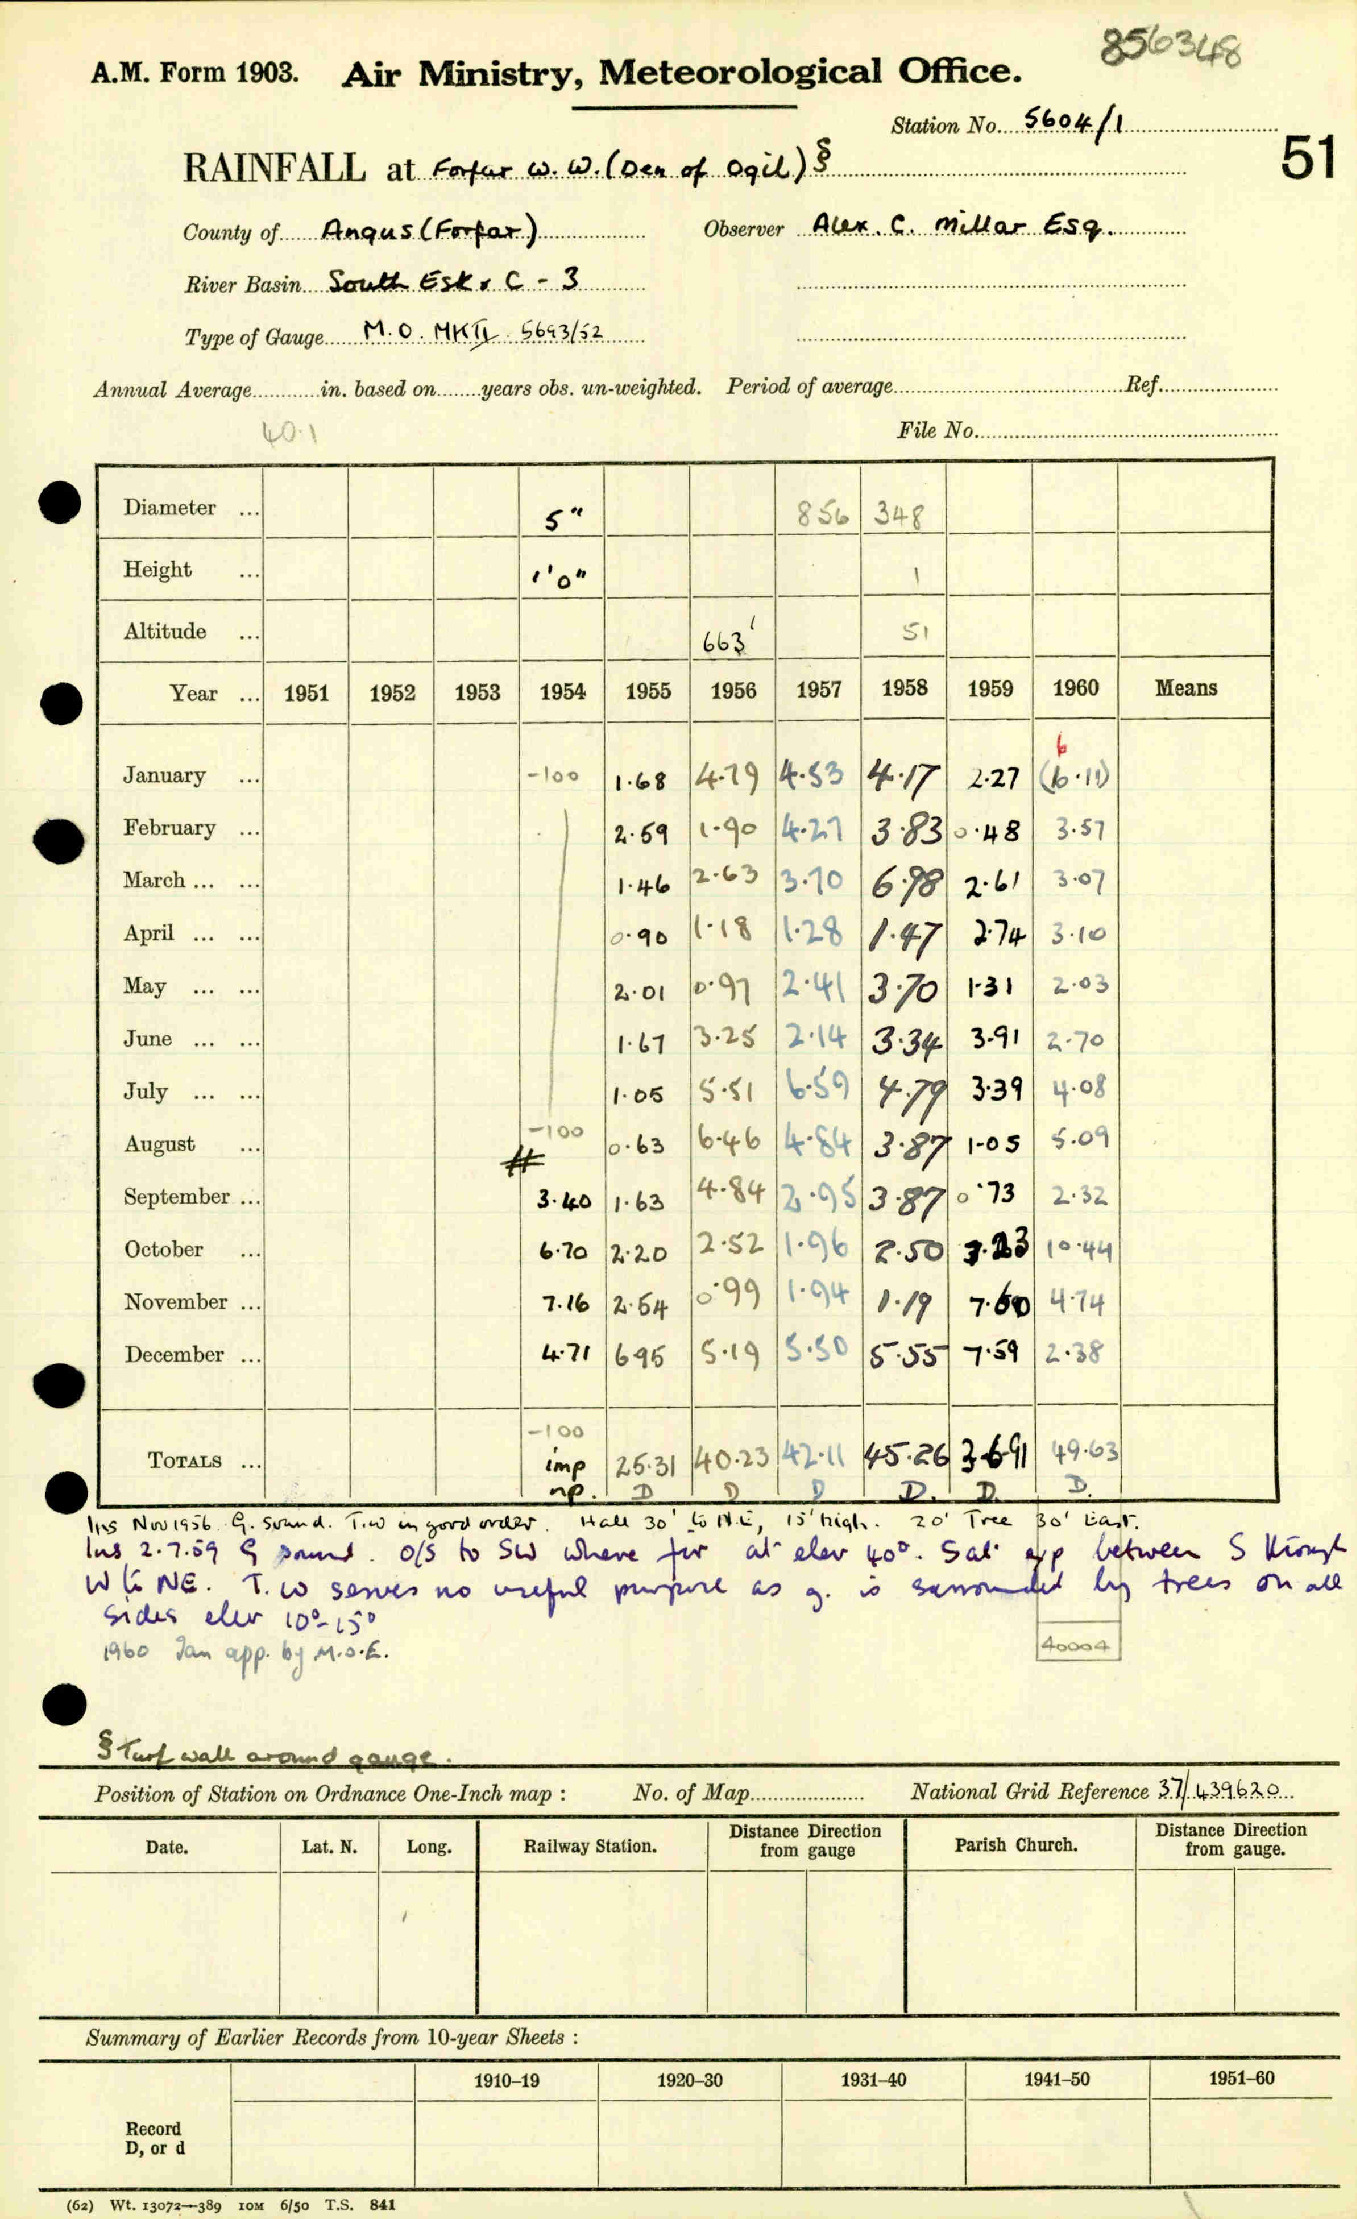 856348
A.M. Form 1903. Air Ministry, Meteorological Office.
Station No. 5604/1
51
RAINFALL at Forfar W.W. (Den of Ogil) §
County of Angus (Forfar) Observer Alex. C. Millar Esq.
River Basin South Esk. C - 3
Type of Gauge M.O. MK II 5693/52
Annual Average in. based on years obs. un-weighted. Period of average Ref.
40.1
File No.
Diameter ... 5" 856 348
Height ... 1'0" 1
Altitude ... 663' 51
Year ... 1951 1952 1953 1954 1955 1956 1957 1958 1959 1960 Means
6
January ... -100 1.68 4.79 4.53 4.17 2.27 (6.11)
February ... 2.59 1.90 4.27 3.83 0.48 3.57
March ... ... 1.46 2.63 3.70 6.98 2.61 3.07
April ... ... 0.90 1.18 1.28 1.47 2.74 3.10
May ... ... 2.01 0.97 2.41 3.70 1.31 2.03
June ... ... 1.67 3.25 2.14 3.34 3.91 2.70
July ... ... 1.05 5.51 6.59 4.79 3.39 4.08
August ... -100 0.63 6.46 4.84 3.87 1.05 5.09
#
September ... 3.40 1.63 4.84 2.95 3.87 0.73 2.32
October ... 6.70 2.20 2.52 1.96 2.50 3.23 10.44
November ... 7.16 2.54 0.99 1.94 1.19 7.60 4.74
December ... 4.71 6.95 5.19 5.50 5.55 7.59 2.38
-100
TOTALS ... imp 25.31 40.23 42.11 45.26 36.91 49.63
np. D D D D. D. D.
Ins Nov 1956 G. sound. T.W in good order. Hall 30' to N.E, 15' high. 20' Tree 30' East.
Ins 2.7.59 G sound. O/S to SW where fir at elev 40°. Sat exp between S through
W to NE. T.W serves no useful purpose as g. is surrounded by trees on all
sides elev 10°-15°
1960 Jan app. by M.O.E.
40004
§ Turf wall around gauge.
Position of Station on Ordnance One-Inch map : No. of Map National Grid Reference 37/439620
Date. Lat. N. Long. Railway Station. Distance Direction from gauge Parish Church. Distance Direction from gauge.
Summary of Earlier Records from 10-year Sheets :
1910–19 1920–30 1931–40 1941–50 1951–60
Record
D, or d
(62) Wt. 13072—389 10M 6/50 T.S. 841